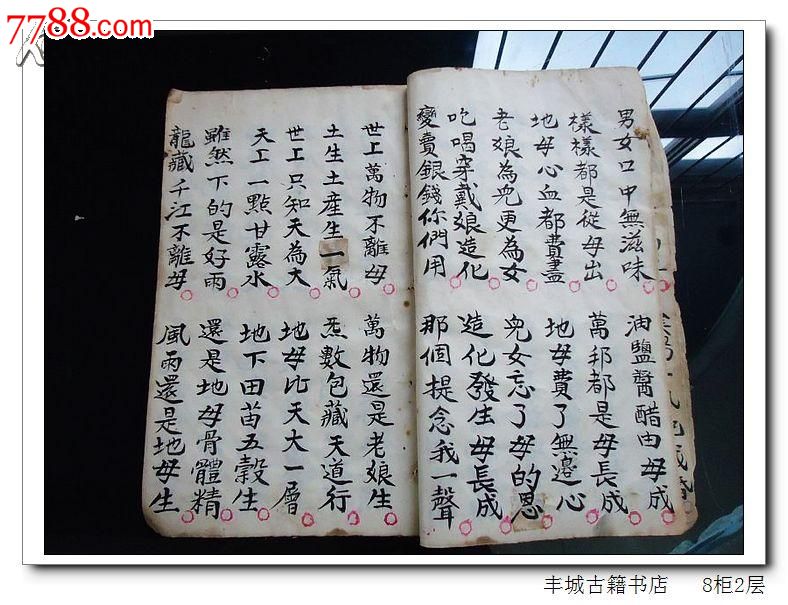 7788.com
男女口中無滋味 油鹽醬醋由母成
樣樣都是從母出 萬邦都是母長成
地母心血都費盡 地母費了無邊心
老娘為兒更為女 兒女忘了母的恩
吃喝穿戴娘造化 造化發生母長成
變賣銀錢你們用 那個提念我一聲
世上萬物不離母 萬物還是老娘生
土生土産生一氣 炁數包藏天道行
世上只知天為大 地母比天大一層
天上一點甘露水 地下田苗五穀生
雖然下的是好雨 還是地母骨體精
龍藏千江不離母 風雨還是地母生
丰城古籍书店 8柜2层